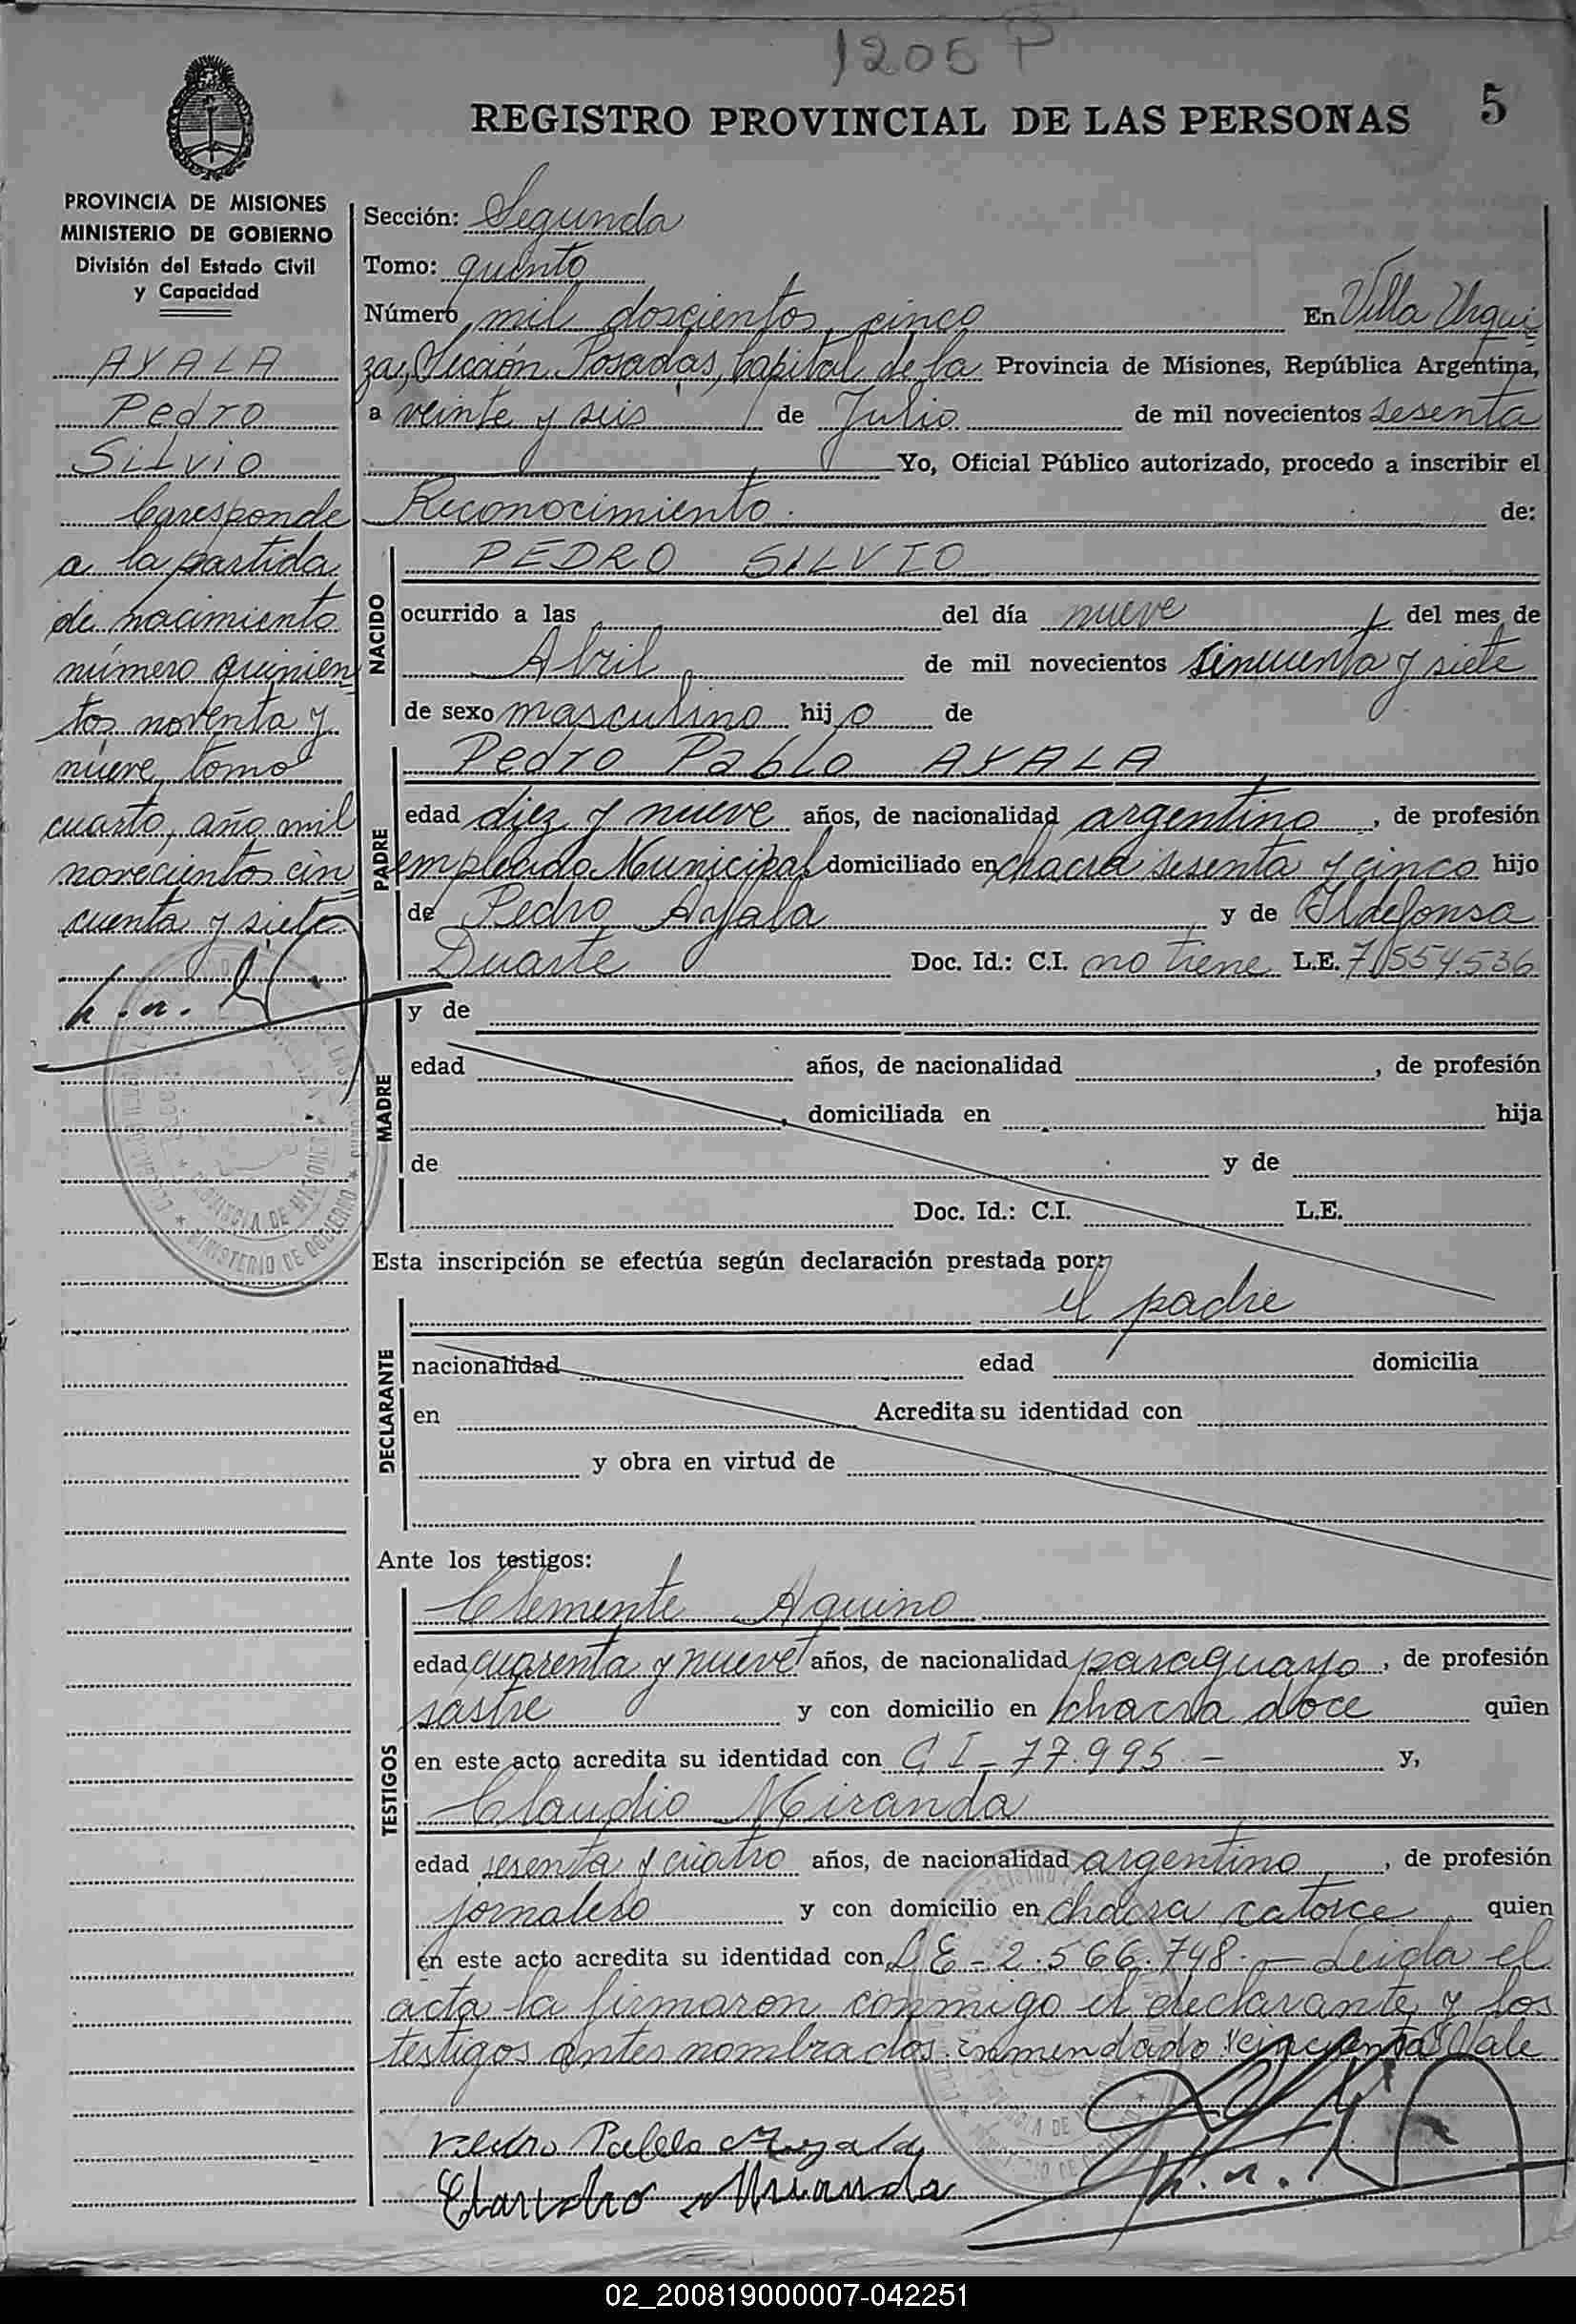 1205 P
5
REGISTRO PROVINCIAL DE LAS PERSONAS
PROVINCIA DE MISIONES
MINISTERIO DE GOBIERNO
División del Estado Civil
y Capacidad
AYALA
Pedro
Silvio
Corresponde
a la partida
de nacimiento
número quinien
tos noventa y
nueve, tomo
cuarto, año mil
novecientos cin
cuenta y siete
Sección: Segunda
Tomo: quinto
Número mil doscientos cinco En Villa Urqui
za, Sección Posadas, Capital de la Provincia de Misiones, República Argentina,
a veinte y seis de Julio de mil novecientos sesenta
Yo, Oficial Público autorizado, procedo a inscribir el
Reconocimiento de:
NACIDO
PEDRO SILVIO
ocurrido a las del día nueve del mes de
Abril de mil novecientos sincuenta y siete
de sexo masculino hijo de
PADRE
Pedro Pablo AYALA
edad diez y nueve años, de nacionalidad argentino, de profesión
empleado Municipal domiciliado en chacra sesenta y cinco hijo
de Pedro Ayala y de Ildefonsa
Duarte Doc. Id.: C.I. no tiene L.E. 7.554.536
MADRE
y de
edad años, de nacionalidad , de profesión
domiciliada en hija
de y de
Doc. Id.: C.I. L.E.
Esta inscripción se efectúa según declaración prestada por:
el padre
DECLARANTE
nacionalidad edad domicilia
en Acredita su identidad con
y obra en virtud de
Ante los testigos:
TESTIGOS
Clemente Aquino
edad cuarenta y nueve años, de nacionalidad paraguayo, de profesión
sastre y con domicilio en chacra doce quien
en este acto acredita su identidad con C I - 77.995.- y,
Claudio Miranda
edad sesenta y cuatro años, de nacionalidad argentino, de profesión
jornalero y con domicilio en chacra catorce quien
en este acto acredita su identidad con L E - 2.566.748.- Leida el
acta la firmaron conmigo el declarante y los
testigos antes nombrados. Enmendado "cincuenta" Vale
Pedro Pablo Ayala
Claudio Miranda
02_200819000007-042251